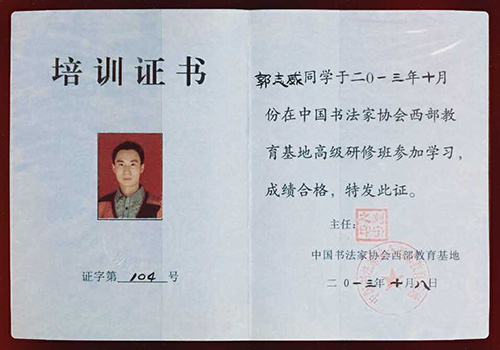 培训证书
证字第 104 号
郭志威同学于二〇一三年十月
份在中国书法家协会西部教
育基地高级研修班参加学习，
成绩合格，特发此证。
主任：
中国书法家协会西部教育基地
二〇一三年十月八日